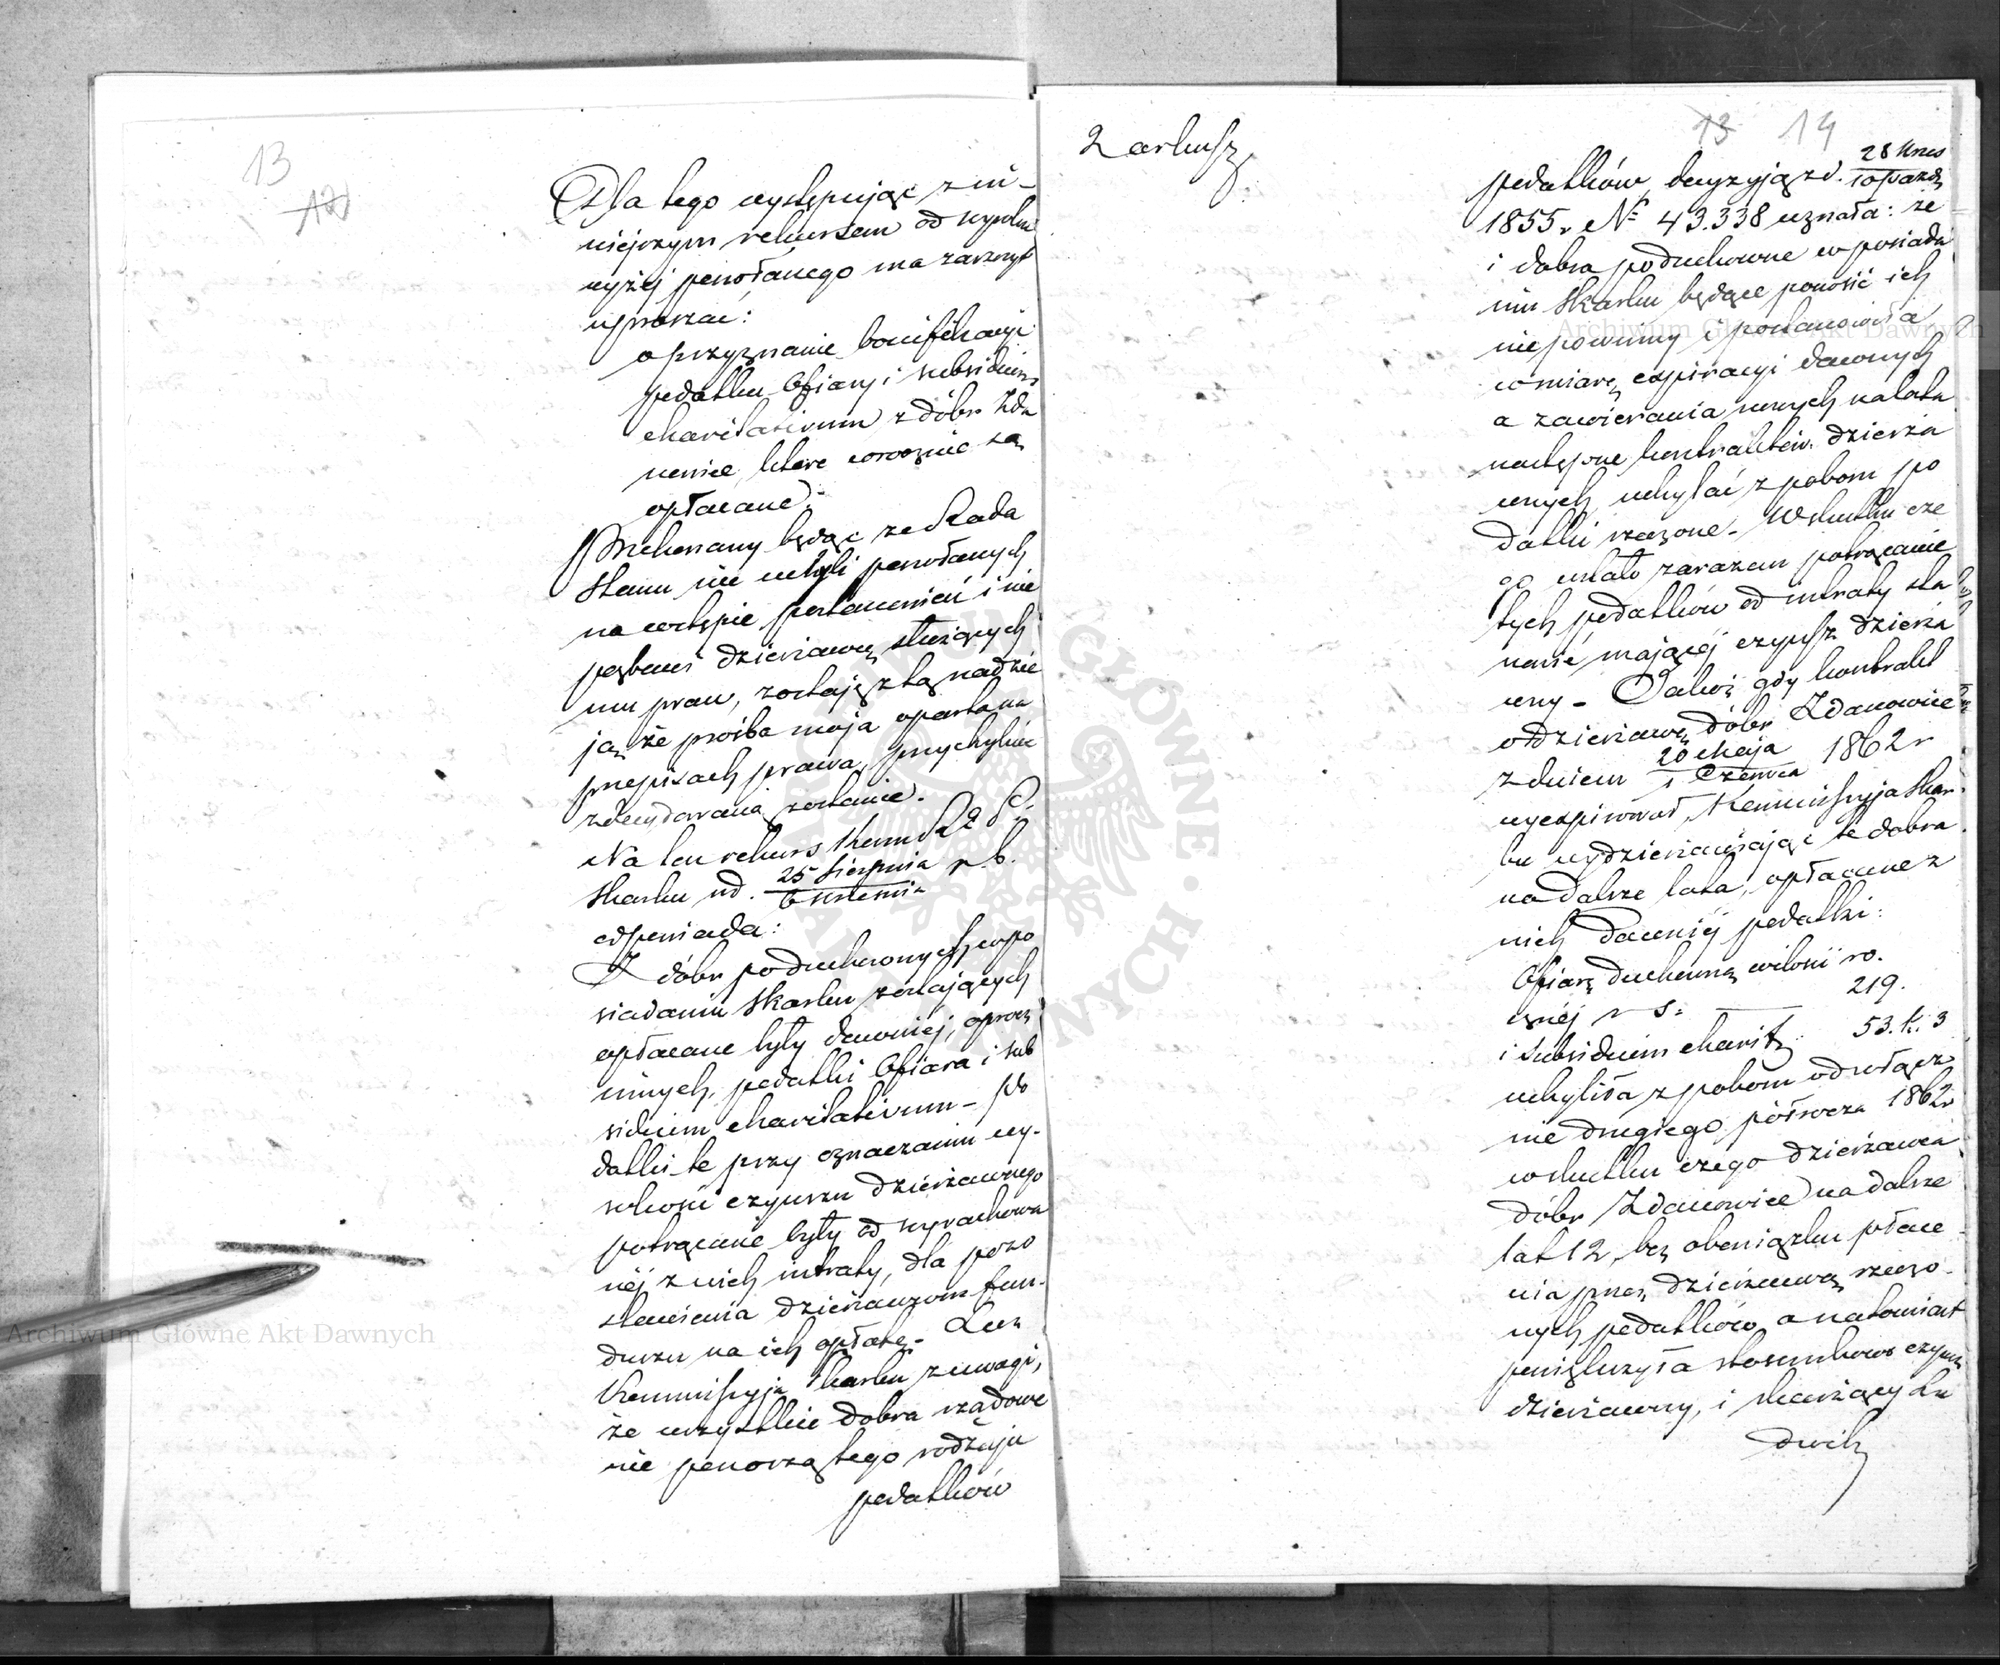 13
12
Dla tego występując z ni-
niejszym rekursem od wyroku
wyżej powołanego ma zaszczyt
upraszać:
o przyznanie bonifikacyi
podatku Ofiary i subsidium
charitativum z dóbr Zda
nowice, które corocznie są
opłacane.
Przekonany będąc że Rada
Stanu nie uchyli powołanych
na wstępie postanowień i nie
pozbawi dzierżawcę służących
mu praw, zostaję z tą nadzie
ją że prośba moja oparta na
przepisach prawa, przychylnie
zdecydowaną zostanie.
Na ten rekurs Kom: R. P. i
Skarbu pd. 25 Sierpnia r. b.
6 Września
odpowiada:
Z dóbr poduchownych, w po
siadaniu Skarbu zostających
opłacane były dawniej, oprócz
innych, podatki Ofiara i sub
sidium charitativum - Po
datki te przy oznaczaniu wy-
sokości czynszu dzierżawnego
potrącane były od wyrachowa
néj z nich intraty, dla pozo
stawienia dzierżawcom fun-
duszu na ich opłatę. Lecz
Kommissyja Skarbu z uwagi,
że wszystkie dobra rządowe
nie ponoszą tego rodzaju
podatków
2 arkusz
13 14
podatków, decyzyją z d. 28 Wrześ
10 Paźdz
1855 r. No 43.338 uznała: że
i dobra poduchowne w posiada
niu Skarbu będące ponosić ich
nie powinny i postanowiła
w miarę expiracyi dawnych
a zawierania nowych na lata
następne kontraktów dzierża
wnych, uchylać z poboru po
datki rzeczone. W skutku cze
go ustało zarazem potrącanie
tych podatków od intraty sta
nowić mającéj czynsz dzierża
wny - Jakoż gdy kontrakt
o dzierżawę dóbr Zdanowice
z dniem 20 Maja 1862 r
1 Czerwca
wyexpirował, Kommissyja Skar-
bu wydzierżawiając te dobra
na dalsze lata, opłacane z
nich dawniéj podatki:
Ofiarę duchowną w ilości ro.
cznéj r s. — 219.
i Subsidium charit. 53. k. 3
uchyliła z poboru od włącz
nie drugiego półrocza 1862 r
w skutku czego dzierżawca
dóbr Zdanowice na dalsze
lat 12, bez obowiązku płace
nia przez dzierżawcę rzeczo-
nych podatków, a natomiast
powiększyła stosunkowo czynsz
dzierżawny, i
dwih
Archiwum Główne Akt Dawnych
Archiwum Główne Akt Dawnych
ARCHIWUM GŁÓWNE AKT DAWNYCH